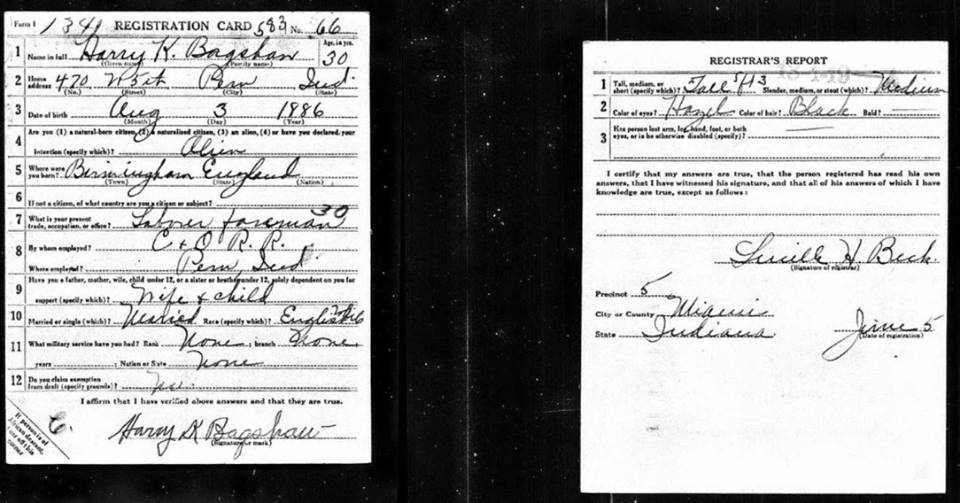 Form 1 1341 REGISTRATION CARD 583 No. 66
1 Name in full Harry K. Bagshaw Age, in yrs. 30
(Given name) (Family name)
2 Home address 470 W 5th Peru Ind
(No.) (Street) (City) (State)
3 Date of birth Aug 3 1886
(Month) (Day) (Year)
4 Are you (1) a natural-born citizen, (2) a naturalized citizen, (3) an alien, (4) or have you declared your
intention (specify which)? Alien
5 Where were you born? Birmingham England
(Town) (State) (Nation)
6 If not a citizen, of what country are you a citizen or subject?
7 What is your present trade, occupation, or office? Laborer foreman 30
8 By whom employed? C + O R. R.
Where employed? Peru, Ind
9 Have you a father, mother, wife, child under 12, or a sister or brother under 12, solely dependent on you for
support (specify which)? Wife & child
10 Married or single (which)? Married Race (specify which)? English
11 What military service have you had? Rank None ; branch None
years ; Nation or State None
12 Do you claim exemption from draft (specify grounds)? No
I affirm that I have verified above answers and that they are true.
Harry K Bagshaw
(Signature or mark)
If person is of African descent, tear off this corner
REGISTRAR'S REPORT
1 Tall, medium, or short (specify which)? Tall Slender, medium, or stout (which)? Medium
2 Color of eyes? Hazel Color of hair? Black Bald?
3 Has person lost arm, leg, hand, foot, or both
eyes, or is he otherwise disabled (specify)?
I certify that my answers are true, that the person registered has read his own
answers, that I have witnessed his signature, and that all of his answers of which I have
knowledge are true, except as follows:
Lucille H. Beck
(Signature of registrar)
Precinct 5
City or County Miami
State Indiana June 5
(Date of registration)